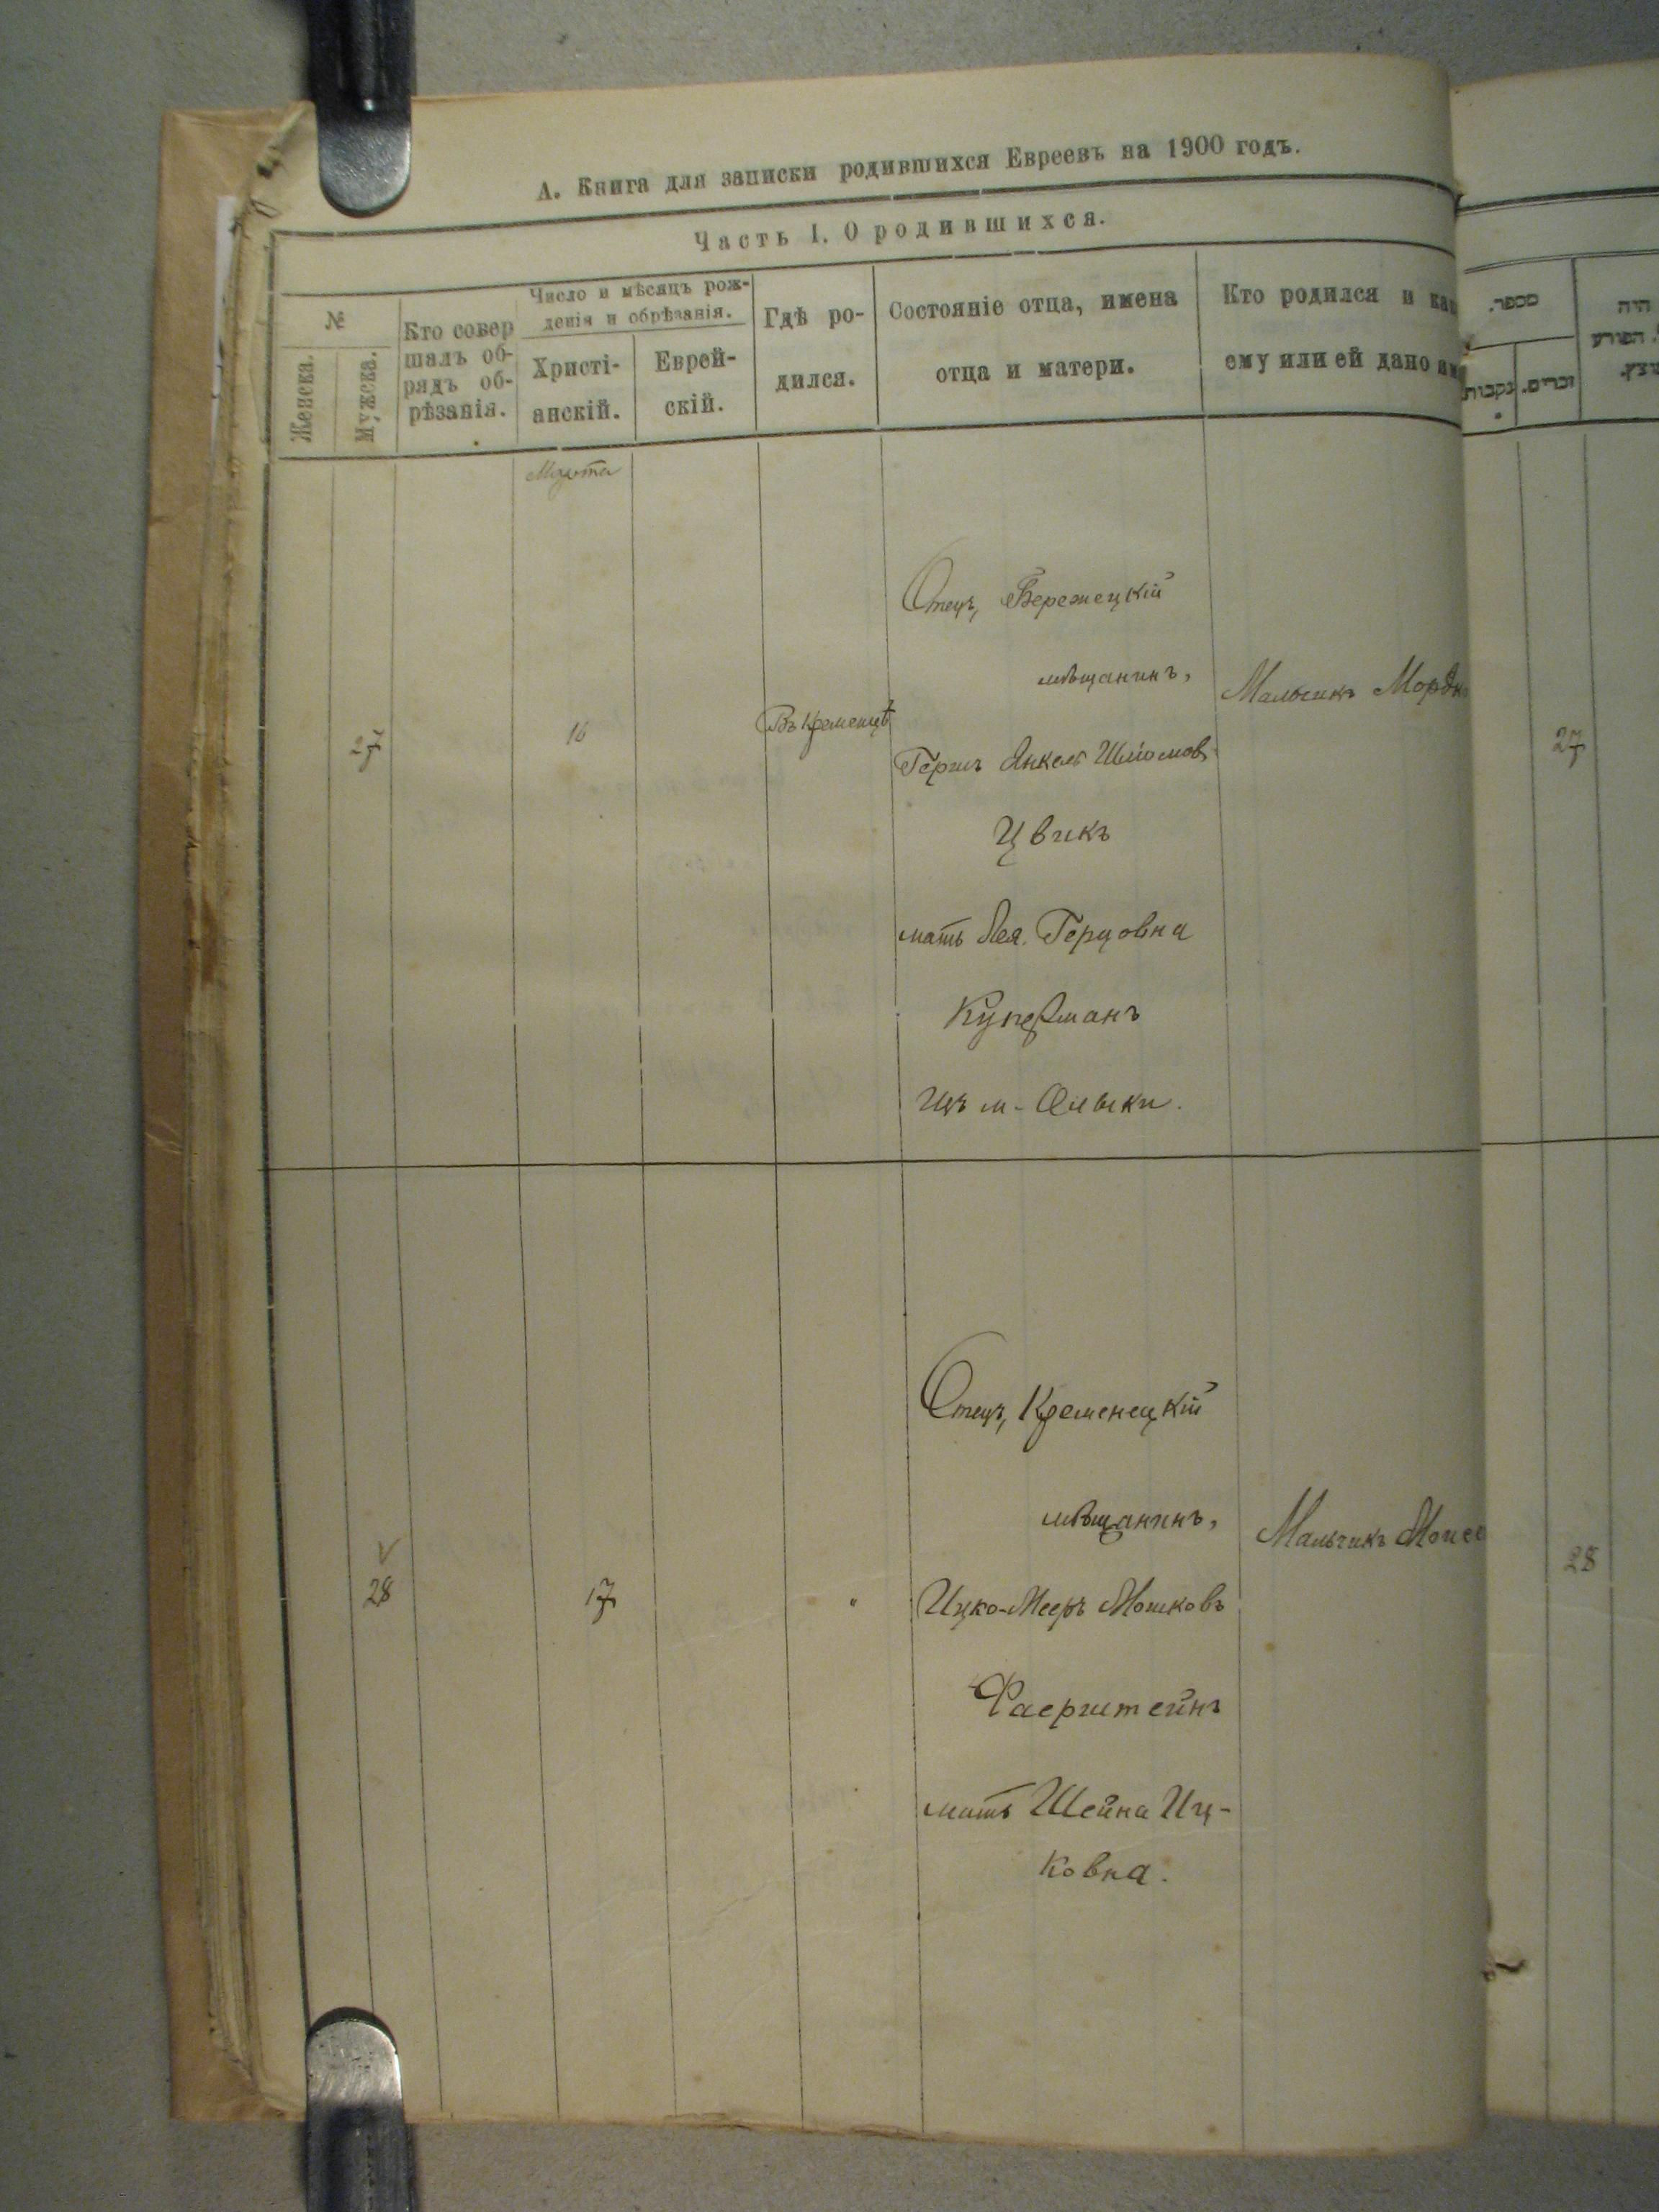 А. Книга для записки родившихся Евреевъ на 1900 годъ.
Часть I. О родившихся.
№
Женска.
Мужска.
Кто совер
шалъ об-
рядъ об-
рѣзанія.
Число и мѣсяцъ рож-
денія и обрѣзанія.
Христі-
анскій.
Еврей-
скій.
Гдѣ ро-
дился.
Состояніе отца, имена
отца и матери.
Кто родился и как
ему или ей дано им
מספר.
נקבות.
זכרים.
היה
הפורע
Марта
27
16
Въ Кременцѣ
Отецъ, Бережецкій
мѣщанинъ,
Гершъ Янкель Шліомовъ
Цвикъ
мать Лея Герцовна
Куперманъ
Изъ м. Олыки.
Мальчикъ Мордк
27
28
17
"
Отецъ, Кременецкій
мѣщанинъ,
Ицко-Мееръ Мошковъ
Фаерштейнъ
мать Шейна Иц-
ковна.
Мальчикъ Моисе
28